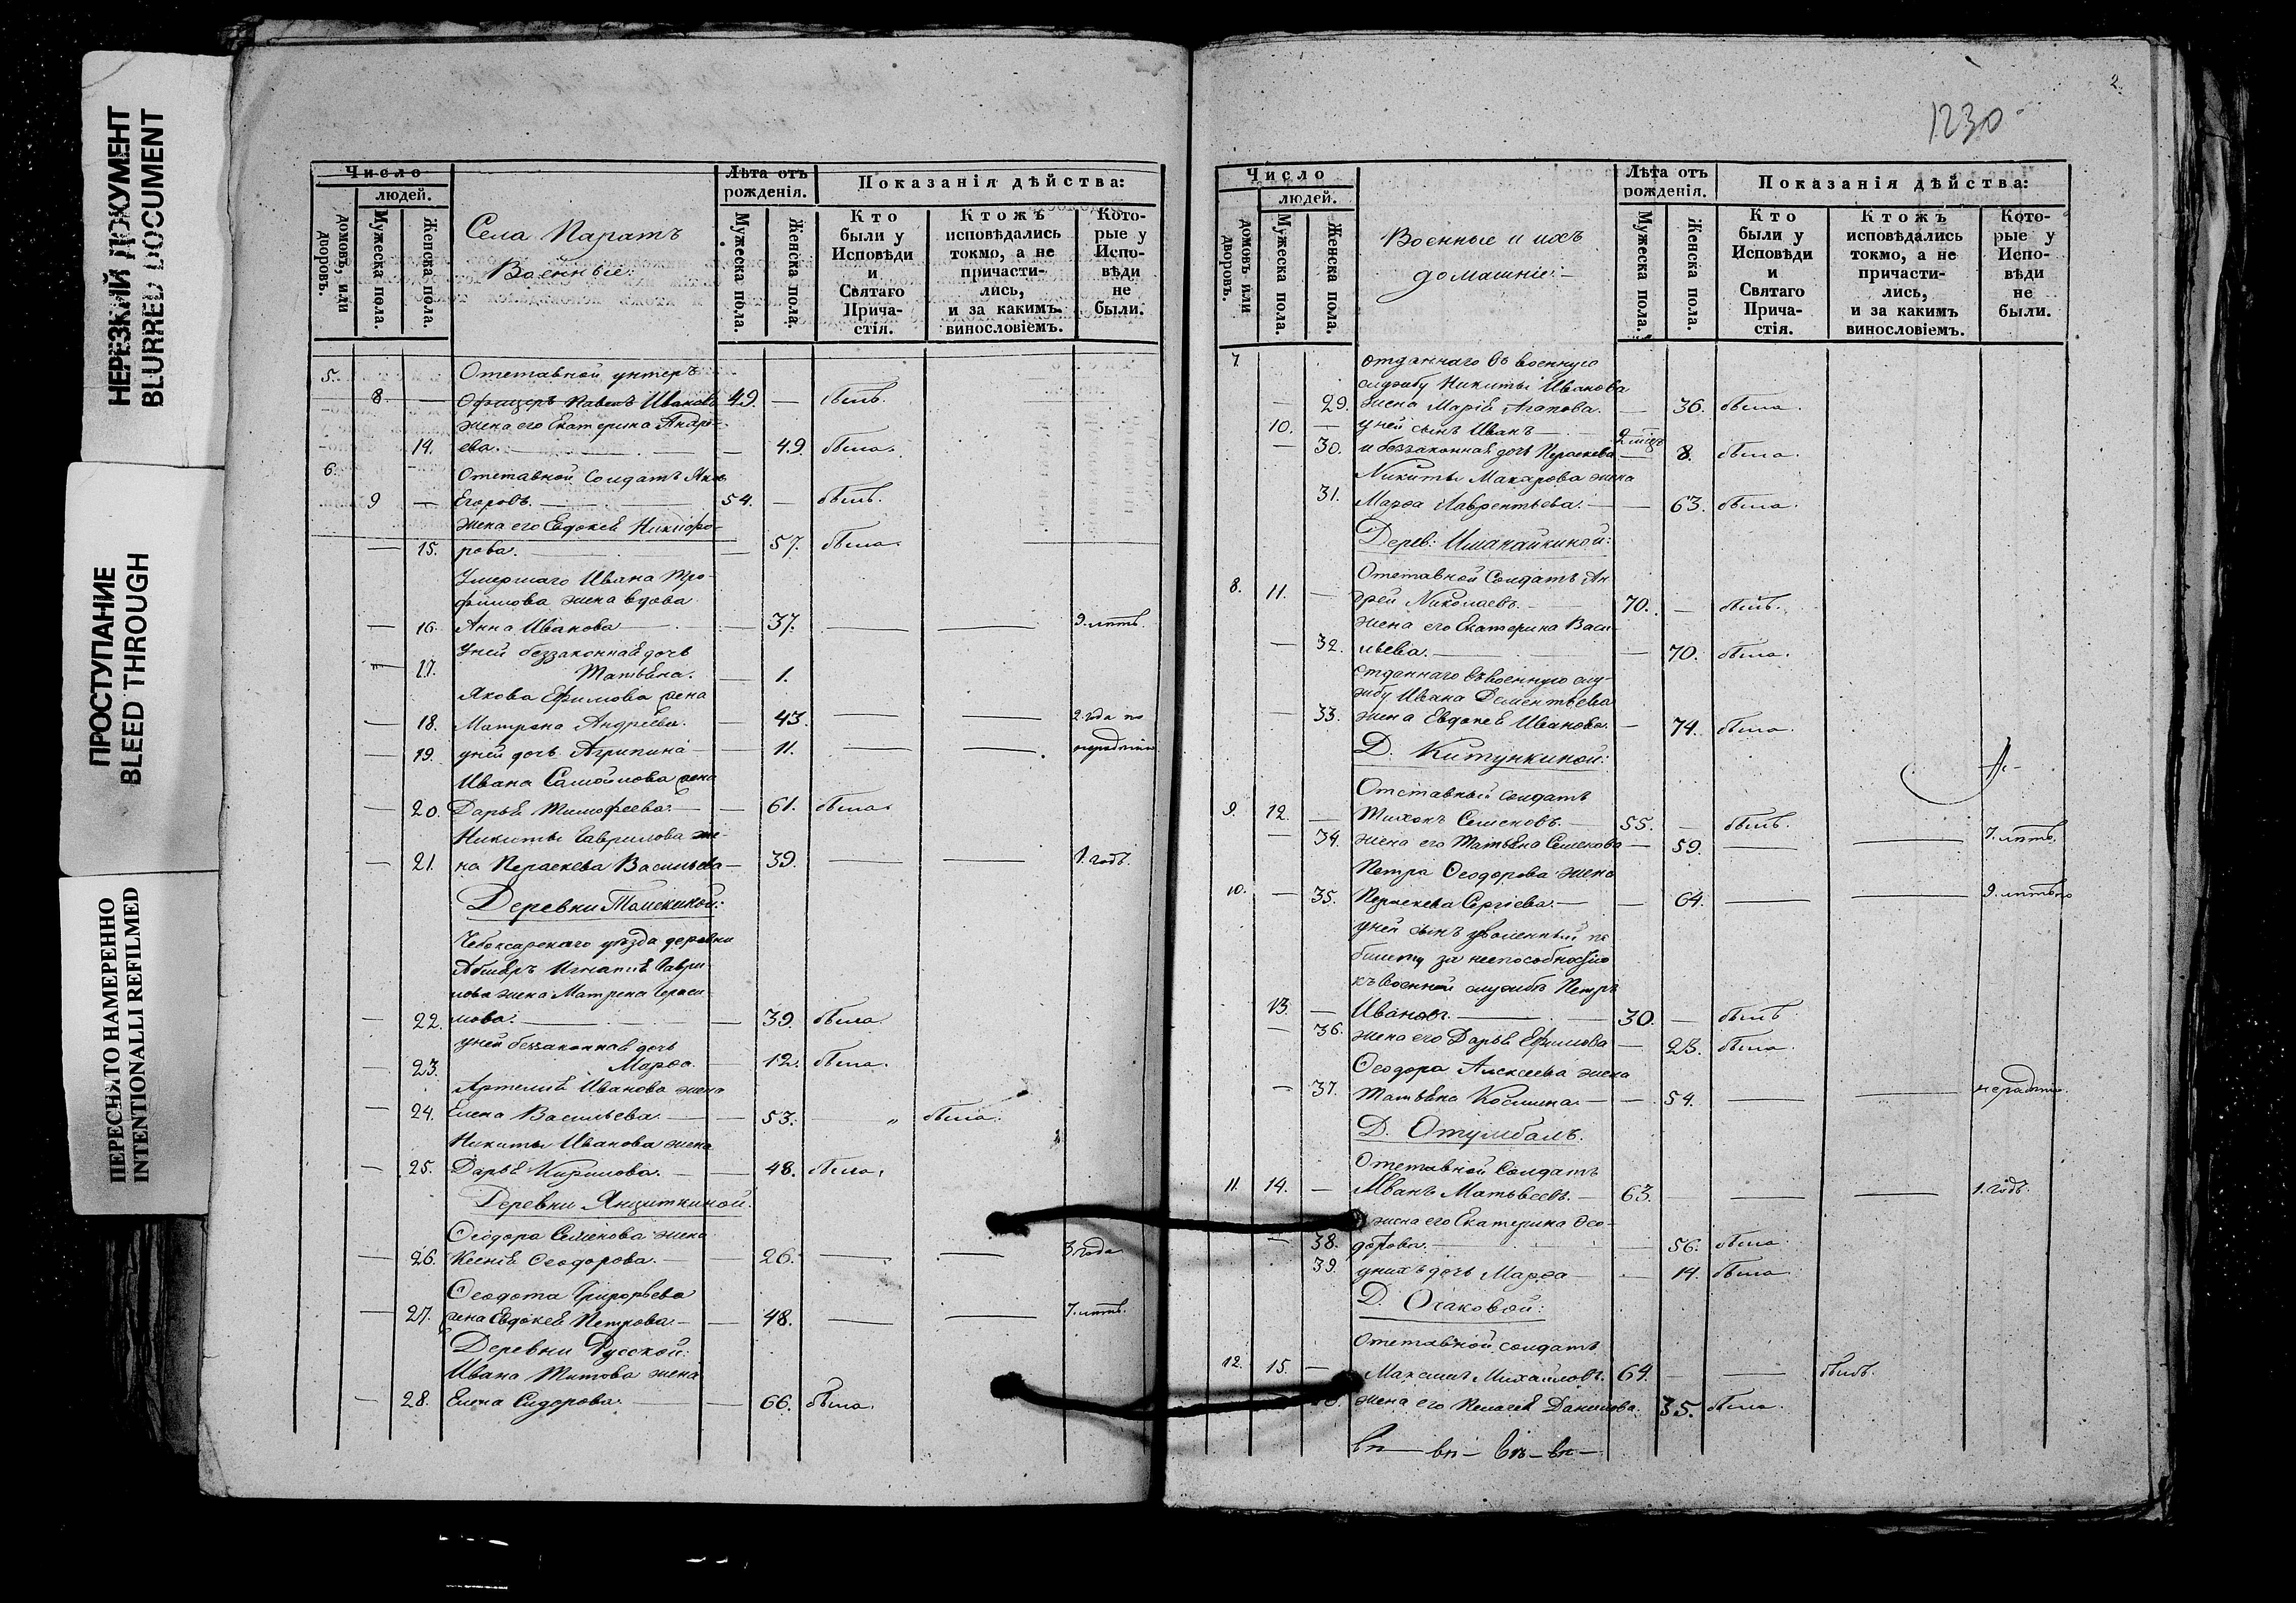 НЕРЕЗКИЙ ДОКУМЕНТ
BLURRED DOCUMENT
ПРОСТУПАНИЕ
BLEED THROUGH
ПЕРЕСНЯТО НАМЕРЕННО
INTENTIONALLI REFILMED
Число
людей.
домовъ, или дворовъ.
Мужеска пола.
Женска пола.
Села Паратъ
Военные:
Лѣта отъ рожденія.
Мужеска пола.
Женска пола.
Показанія дѣйства:
Кто были у Исповѣди и Святаго Прича-стія.
Ктожъ исповѣдались токмо, а не причасти-лись, и за какимъ винословіемъ.
Кото-рые у Испо-вѣди не были.
5. Отставной унтеръ
8 — Офицеръ Павелъ Ивановъ 49. — былъ.
жена его Екатерина Андре-
14. ева. — — 49. была.
6. Отставной Солдатъ Яковъ
9 — Егоровъ. — 54. — былъ.
жена его Евдокія Никифо-
— 15. рова. — — 57. была.
Умершаго Ивана Тро-
фимова жена вдова
— 16. Анна Иванова — — 37. — — 9. лѣтъ.
у ней беззаконная дочь
— 17. Татьяна. — 1.
Якова Ефимова жена
— 18. Матрона Андреева. — 43. — — 2. года по
— 19. у ней дочь Агрипина — — 11. — — нерадѣнію
Ивана Самойлова жена
— 20. Дарья Тимофеева. — — 61. была.
Никиты Гаврилова же-
— 21. на Параскева Васильева — 39. — — 1. годъ.
Деревни Томскиной:
Чебоксарскаго уѣзда деревни
Игнатія Гаври-
лова жена Матрена Гераси-
— 22. мова. — — 39. была.
у ней беззаконная дочь
— 23. Марѳа. — 12. была.
Артемія Иванова жена
— 24. Елена Васильева. — — 53. „ была.
Никиты Иванова жена
— 25. Дарья Кирилова. — — 48. была.
Деревни Янциткиной.
Ѳеодора Семенова жена
26. Ксенія Ѳеодорова. — 26. — — 3 года
Ѳеодота Григорьева
— 27. жена Евдокія Петрова. — — 48. — — 7. лѣтъ.
Деревни Русской:
Ивана Титова жена
— 28. Елена Сидорова. — — 66. была.
2.
1230
Число
людей.
домовъ или дворовъ.
Мужеска пола.
Женска пола.
Военные и ихъ
домашніе: —
Лѣта отъ рожденія.
Мужеска пола.
Женска пола.
Показанія дѣйства:
Кто были у Исповѣди и Святаго Прича-стія.
Ктожъ исповѣдались токмо, а не причасти-лись, и за какимъ винословіемъ.
Кото-рые у Испо-вѣди не были.
7. отданнаго въ военную
службу Никиты Иванова
— 29. жена Марія Агапова. — 36. была.
10. — у ней сынъ Иванъ — 2 мѣц
— 30. и беззаконная дочь Параскева — 8. была.
Никиты Макарова жена
31. Марѳа Лаврентьева. — — 63. была.
Дерев: Иманайкиной:
8. Отставной Солдатъ Ан
11. — дрей Николаевъ. — 70. — былъ.
жена его Екатерина Васи-
— 32. льева. — — 70. была.
отданнаго въ военную слу-
жбу Ивана Дементьева
— 33. жена Евдокія Иванова. — 74. была.
Д. Китункиной:
Отставный солдатъ
9. 12. — Тихонъ Семеновъ. — 55. — былъ.
— 34. жена его Татьяна Семенова — 59. — — 7. лѣтъ.
Петра Ѳеодорова жена
10. — 35. Параскева Сергіева. — — 64. — — 9. лѣтъ по
у ней сынъ уволенный по
билету за неспособностію
къ военной службѣ Петръ
13. — Ивановъ. — 30. — былъ
— 36. жена его Дарья Ефимова — 23. была.
Ѳеодора Алексеева жена
— 37. Татьяна Космина. — — 54. — — нерадѣнію.
Д. Отумбалъ.
Отставной Солдатъ
11. 14. — Иванъ Матвеевъ. — 63. — — — 1. годъ.
жена его Екатерина Ѳео-
— 38. дорова. — — 56. была
39. у нихъ дочь Марѳа — — 14. была.
Д. Осаковой:
Отставной солдатъ
12. 15. — Максимъ Михайловъ. 64. — — былъ.
жена его Пелагея Данилова. 35. была.
вп — вп — вп — вп —